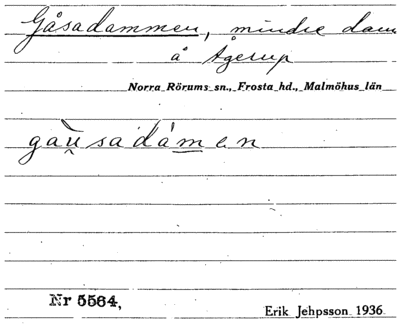 Gåsadammen, mindre dam
å Ågerup
Norra Rörums sn., Frosta hd., Malmöhus län
gàu̯sadámen
Nr 5564,
Erik Jehpsson 1936